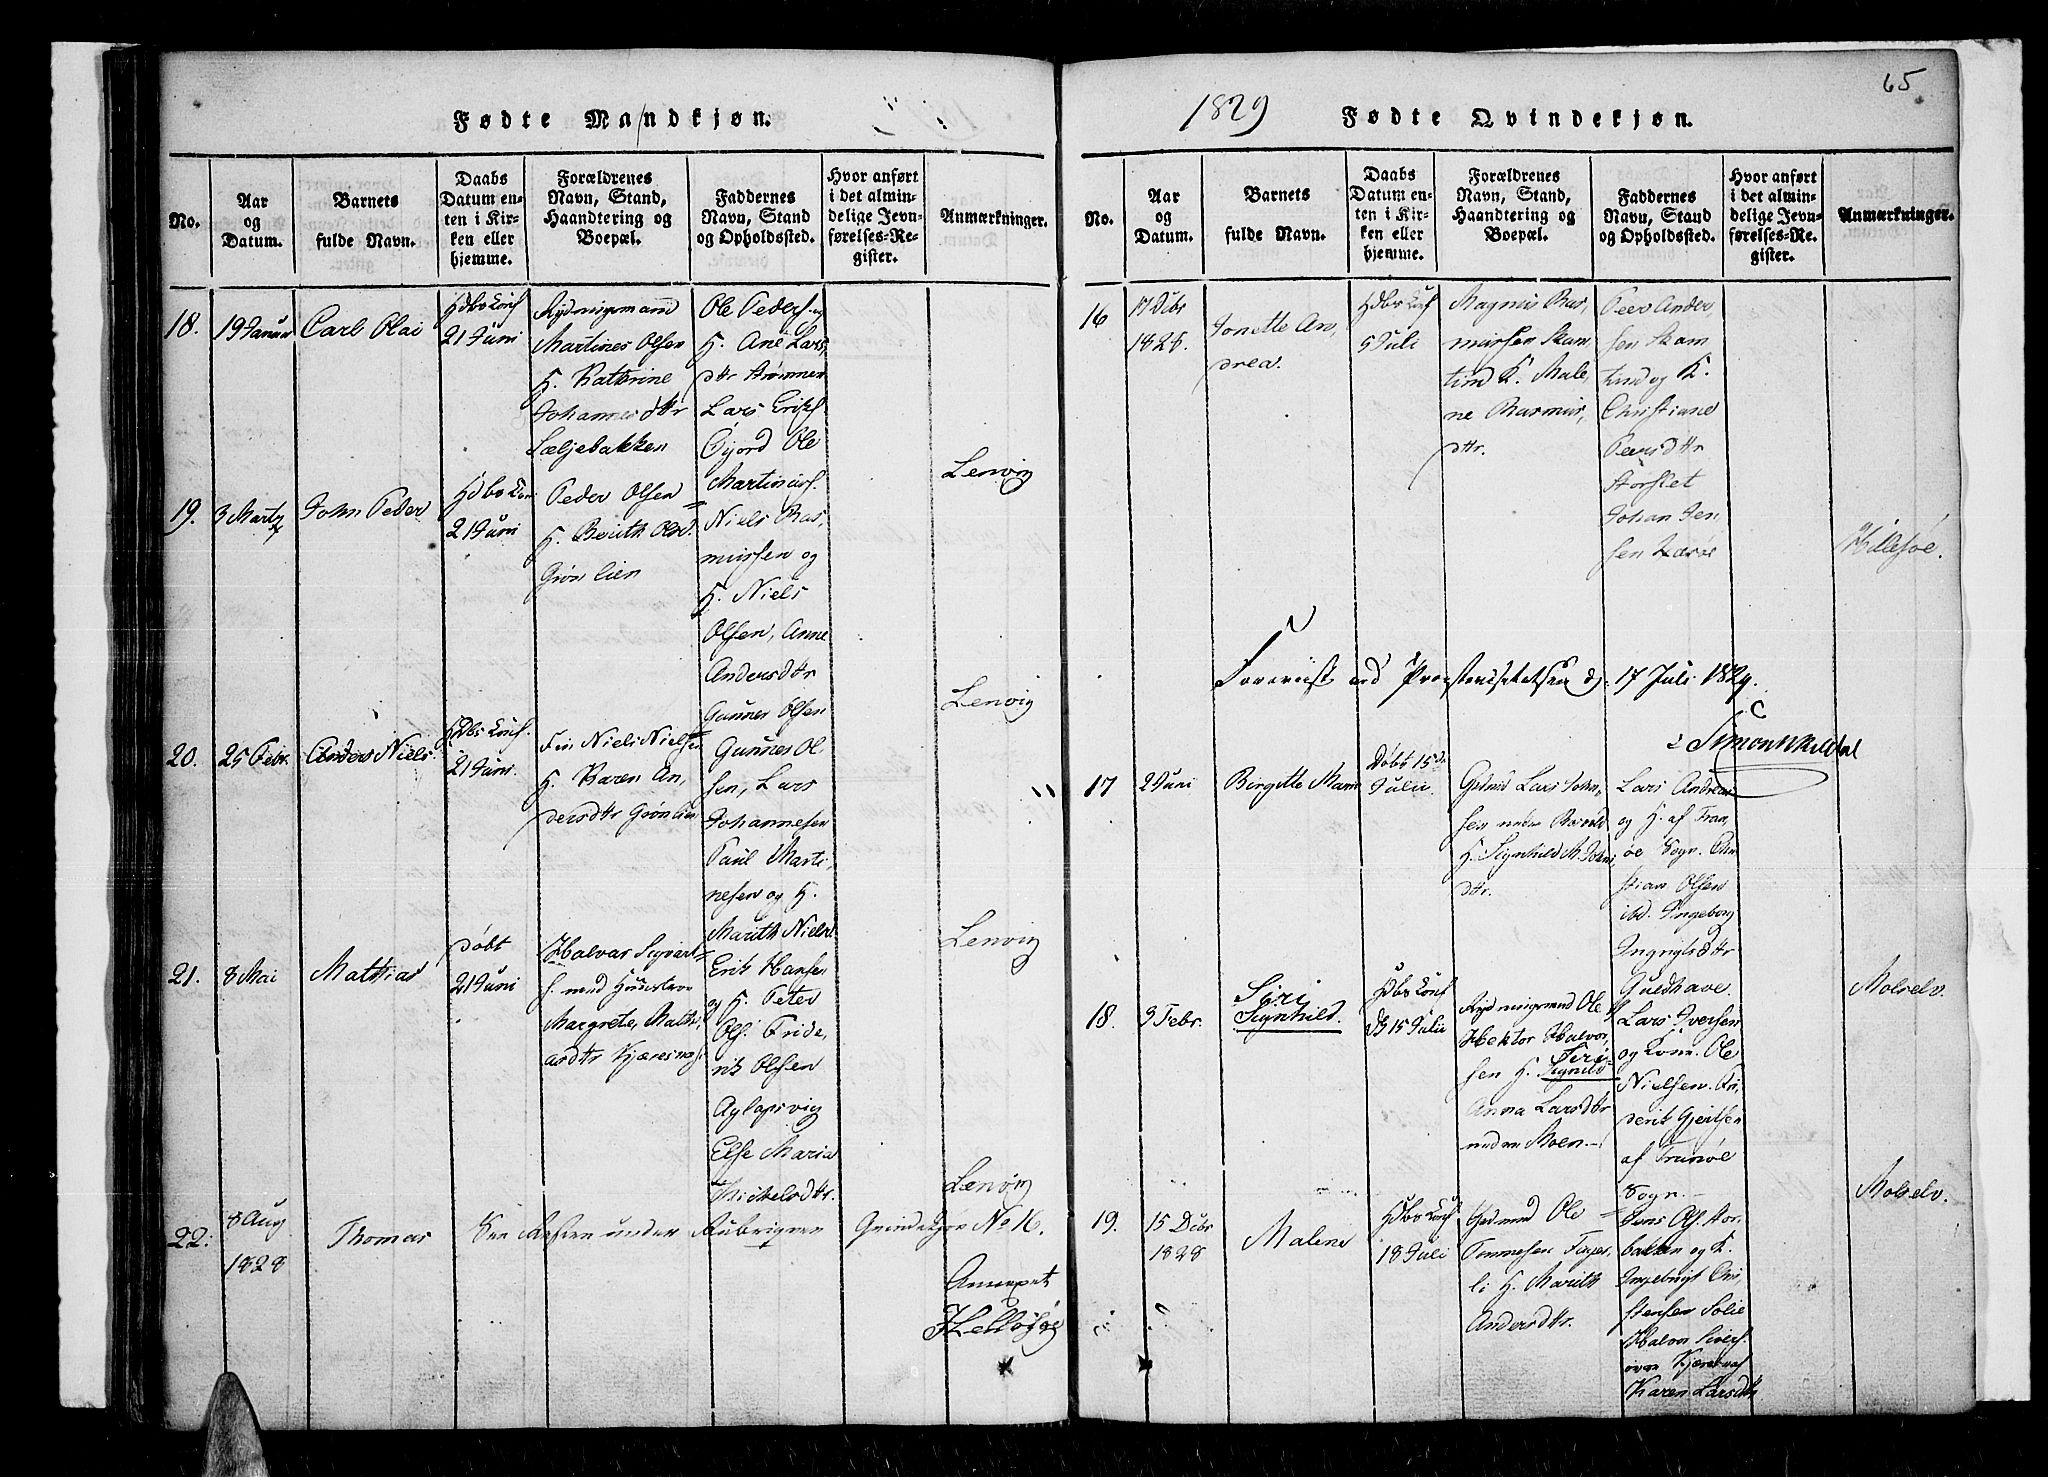 Fødte Mandkjøn.
No.
Aar
og
Datum.
Barnets
fulde Navn.
Daabs
Datum en-
ten i Kir-
ken eller
hjemme.
Forældrenes
Navn, Stand,
Haandtering og
Boepæl.
Faddernes
Navn, Stand
og Opholdssted.
Hvor anført
i det almin-
delige Jevn-
førelses-Re-
gister.
Anmærkninger.
18.
19 Januar
Carl Olai
Hdbs Conf
21 Juni
Rydnigsmand
Martines Olsen
H. Kathrine
Johannesdttr
Sæljebakken
Ole Peders. og
H. Ane Lars
dttr Strømmen
Lars Erichs.
Ole
Martinius.
Lenvig
19.
3 Martz
John Peder
Hdbs Con
21 Juni
Peder Olsen
H. Berith Olsd.
Grønlien
Niels Ras,
mussen og
H. Niels
Olsen, Anne
Andersdttr
Gunner Olsen
Lenvig
20.
25 Febr.
Anders Niels.
Hdbs Conf.
21 Juni.
Fin Niels Nielsen
H. Karen An,
dersdttr Grønlien
Gunnes Ol
sen, Lars
Johannesen
Paul Marti,
nesen og H.
Marith Nielsd.
Lenvig
21.
8 Mai
Mathias
døbt
21 Juni
Halvar Sigvart
s. med Huustroe
Margrete Math,
asdttr Kjæresnes
Erik Hansen
og H. Peter
Ols. Fride,
rik Olsen
Aglapsvig
Else Maria
Michelsdttr.
Lenvig
22.
8 Aug
1828
Thomas
See Næsten under Rubriqven Qvindekjøn No 16.
Annexet
Hellesøe
1829
Fødte Qvindekjøn.
65
No.
Aar
og
Datum.
Barnets
fulde Navn.
Daabs
Datum en-
ten i Kir-
ken eller
hjemme.
Forældrenes
Navn, Stand,
Haandtering og
Boepæl.
Faddernes
Navn, Stand
og Opholdssted.
Hvor anført
i det almin-
delige Jevn-
førelses-Re-
gister.
Anmærkninger.
16
17 Dcbr
1828.
Jonette An,
drea.
Hdbs Conf
5 Juli
Magnus Ras,
mussen Skam
tind K. Male,
ne Rasmus,
dttr.
Peer Ander,
sen Skam
tind og K.
Christiane
Peersdttr
Storslet
Johan Jen
sen
Hillesøe.
Foreviist ved Provstevisitatsen d. 17 Juli 1829.
Simon Kildal
17
2 Juni
Birgitte Marie
Døbt 15de
Julii.
Gdmd Lars John,
sen nedre
H. Signhild M. John,
dttr.
Lars Andreas
og H. af Tran,
øe Sogn. Chri
stian Olsen
ibd. Ingeborg
Ingrigtsdttr
Guldhave.
Molselv.
18.
3 Febr.
Siri
Signhild.
Hdbs Conf
D. 15 Julii
Rydnigsmand Ole
Hektor Halvor,
sen H. Siri
Signild
Anna Larsdttr
nedre Moen.
Lars Iversen
og Kone. Ole
Nielsen. Fri
derik Gjertsen
af Tranøe
Sogn.
Molselv.
19.
15 Dcbr
1828
Malene
Hdbs Conf
18 Juli
Gdmand Ole
Tommesen Fager
li H. Marith
Andersdttr.
Jens Ols. Stor,
bakken og K.
Ingebrigt Chri,
stensen Solie
Halvor Siverts.
Kjæresnes
Karen Larsdttr